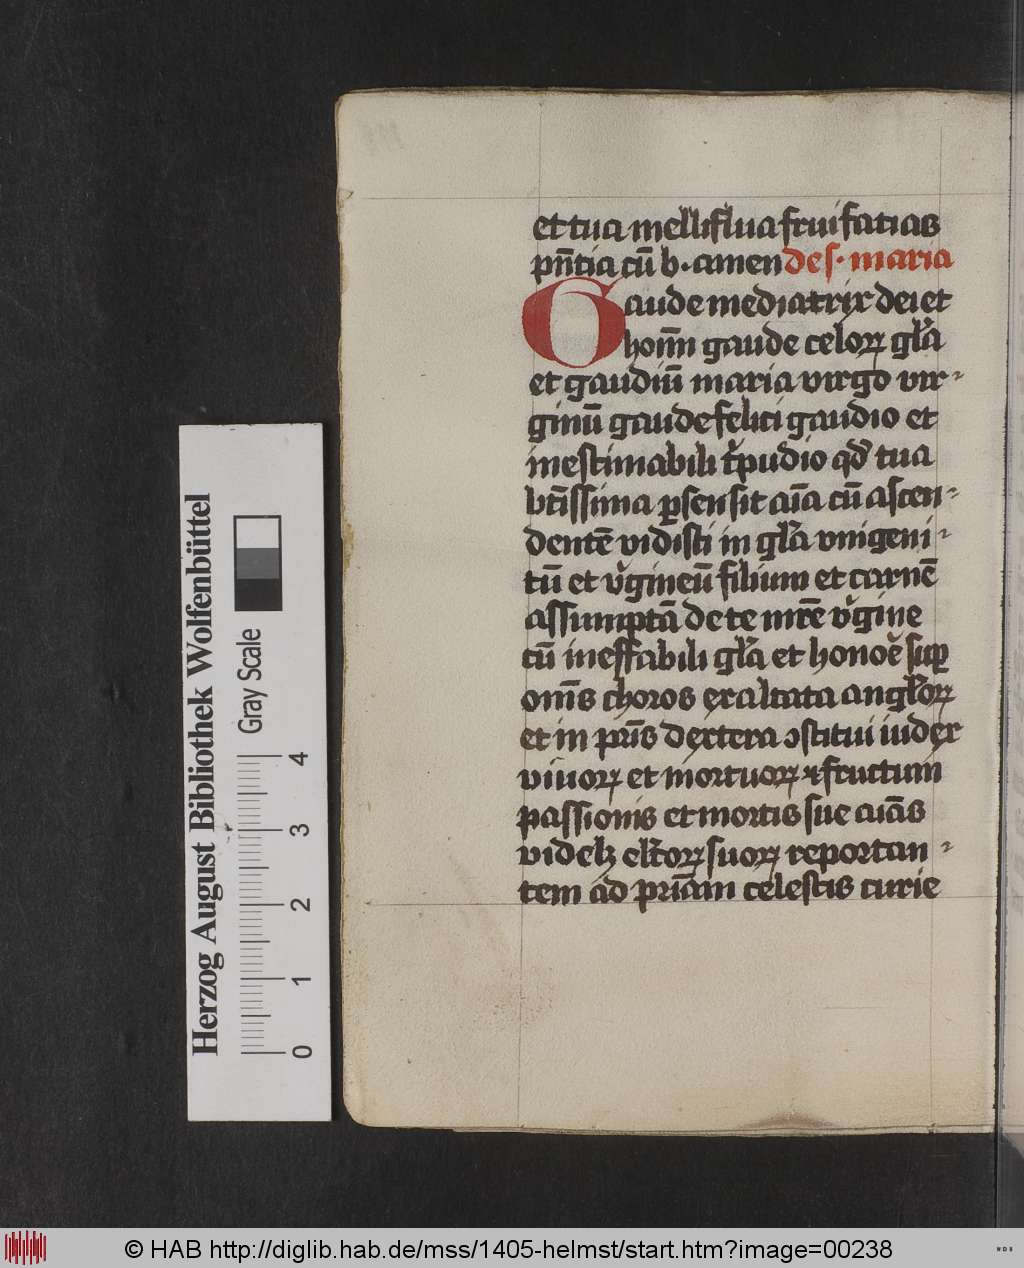 et tua melliflua frui fatias
pn̄tia cū b. amen de s. maria
Gaude mediatrix dei et
hoīm gaude celoꝝ gl̄a
et gaudiū maria virgo vir-
ginū gaude felici gaudio et
inestimabili t̓pudio qd̓ tua
bt̄issima ꝑsensit aīa cū ascen-
dentē vidisti in gl̄a vnigeni-
tū et v̓gineū filium et carnē
assumptā de te mr̄e v̓gine
cū ineffabili gl̄a et honoē suꝑ
om̄s choros exaltata angl̄oꝝ
et in pr̄is dextera ꝯstitui iudex
viuoꝝ et mortuoꝝ ⁊ fructum
passionis et mortis sue aīas
videlꝫ el̄toꝝ suoꝝ reportan-
tem ad pr̄iam celestis curie
Herzog August Bibliothek Wolfenbüttel
Gray Scale
0 1 2 3 4
© HAB http://diglib.hab.de/mss/1405-helmst/start.htm?image=00238